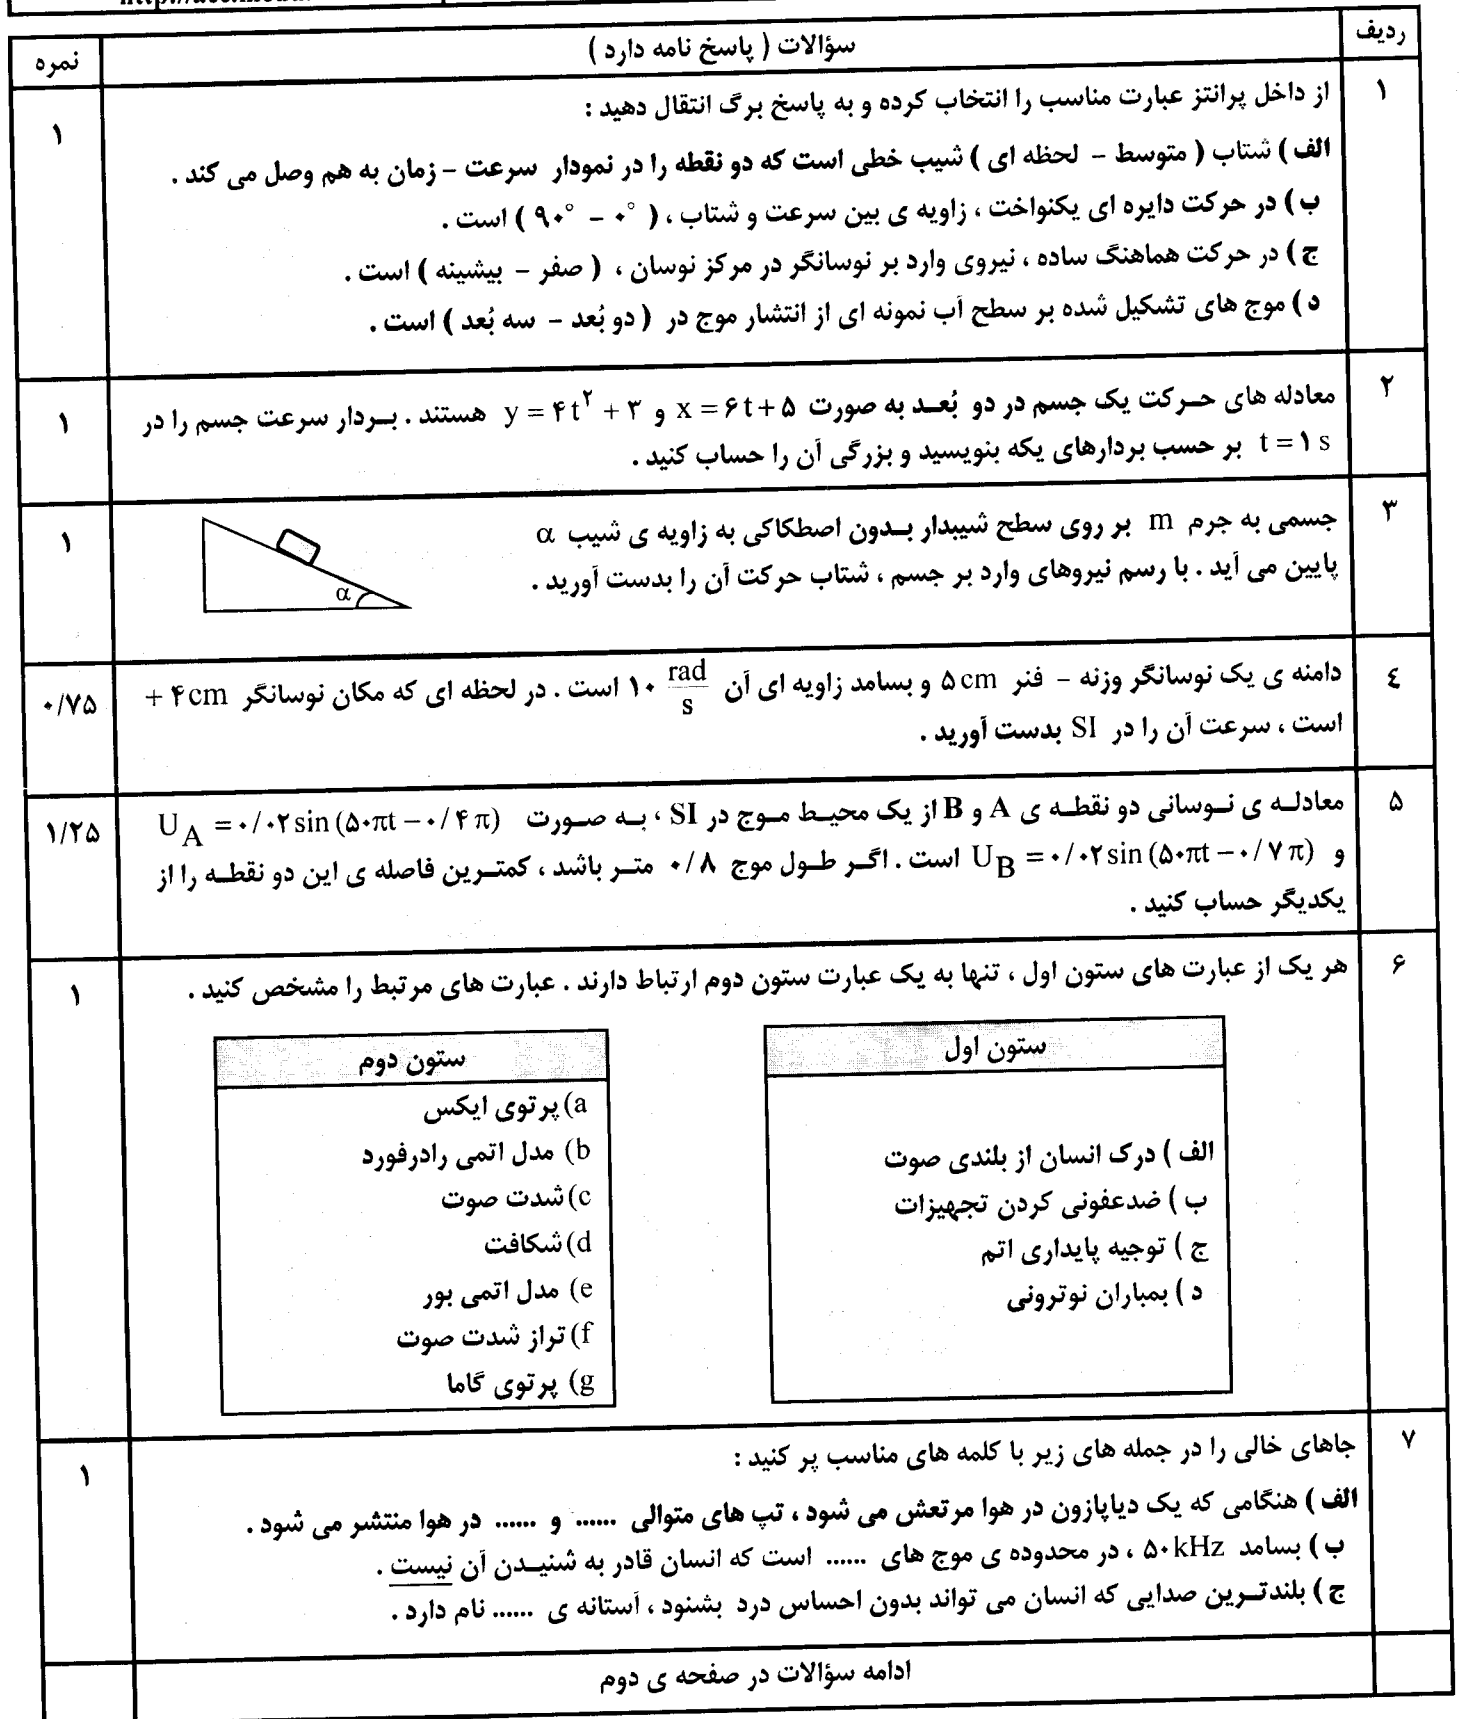 ردیف
سؤالات ( پاسخ نامه دارد )
نمره
۱
از داخل پرانتز عبارت مناسب را انتخاب کرده و به پاسخ برگ انتقال دهید :
۱
الف ) شتاب ( متوسط - لحظه ای ) شیب خطی است که دو نقطه را در نمودار سرعت - زمان به هم وصل می کند .
ب ) در حرکت دایره ای یکنواخت ، زاویه ی بین سرعت و شتاب ، ( ۰° - ۹۰° ) است .
ج ) در حرکت هماهنگ ساده ، نیروی وارد بر نوسانگر در مرکز نوسان ، ( صفر - بیشینه ) است .
د ) موج های تشکیل شده بر سطح آب نمونه ای از انتشار موج در ( دو بُعد - سه بُعد ) است .
۲
معادله های حرکت یک جسم در دو بُعد به صورت x = ۶t + ۵ و y = ۴t² + ۳ هستند . بردار سرعت جسم را در
۱
t = ۱ s بر حسب بردارهای یکه بنویسید و بزرگی آن را حساب کنید .
۳
جسمی به جرم m بر روی سطح شیبدار بدون اصطکاکی به زاویه ی شیب α
۱
پایین می آید . با رسم نیروهای وارد بر جسم ، شتاب حرکت آن را بدست آورید .
α
٤
دامنه ی یک نوسانگر وزنه - فنر ۵ cm و بسامد زاویه ای آن ۱۰ rad/s است . در لحظه ای که مکان نوسانگر + ۴ cm
۰/۷۵
است ، سرعت آن را در SI بدست آورید .
۵
معادله ی نوسانی دو نقطه ی A و B از یک محیط موج در SI ، به صورت U_A = ۰/۰۲ sin (۵۰πt − ۰/۴π)
۱/۲۵
و U_B = ۰/۰۲ sin (۵۰πt − ۰/۷π) است . اگر طول موج ۰/۸ متر باشد ، کمترین فاصله ی این دو نقطه را از
یکدیگر حساب کنید .
۶
هر یک از عبارت های ستون اول ، تنها به یک عبارت ستون دوم ارتباط دارند . عبارت های مرتبط را مشخص کنید .
۱
ستون اول
الف ) درک انسان از بلندی صوت
ب ) ضدعفونی کردن تجهیزات
ج ) توجیه پایداری اتم
د ) بمباران نوترونی
ستون دوم
a) پرتوی ایکس
b) مدل اتمی رادرفورد
c) شدت صوت
d) شکافت
e) مدل اتمی بور
f) تراز شدت صوت
g) پرتوی گاما
۷
جاهای خالی را در جمله های زیر با کلمه های مناسب پر کنید :
۱
الف ) هنگامی که یک دیاپازون در هوا مرتعش می شود ، تپ های متوالی ...... و ...... در هوا منتشر می شود .
ب ) بسامد ۵۰ kHz ، در محدوده ی موج های ...... است که انسان قادر به شنیدن آن نیست .
ج ) بلندترین صدایی که انسان می تواند بدون احساس درد بشنود ، آستانه ی ...... نام دارد .
ادامه سؤالات در صفحه ی دوم